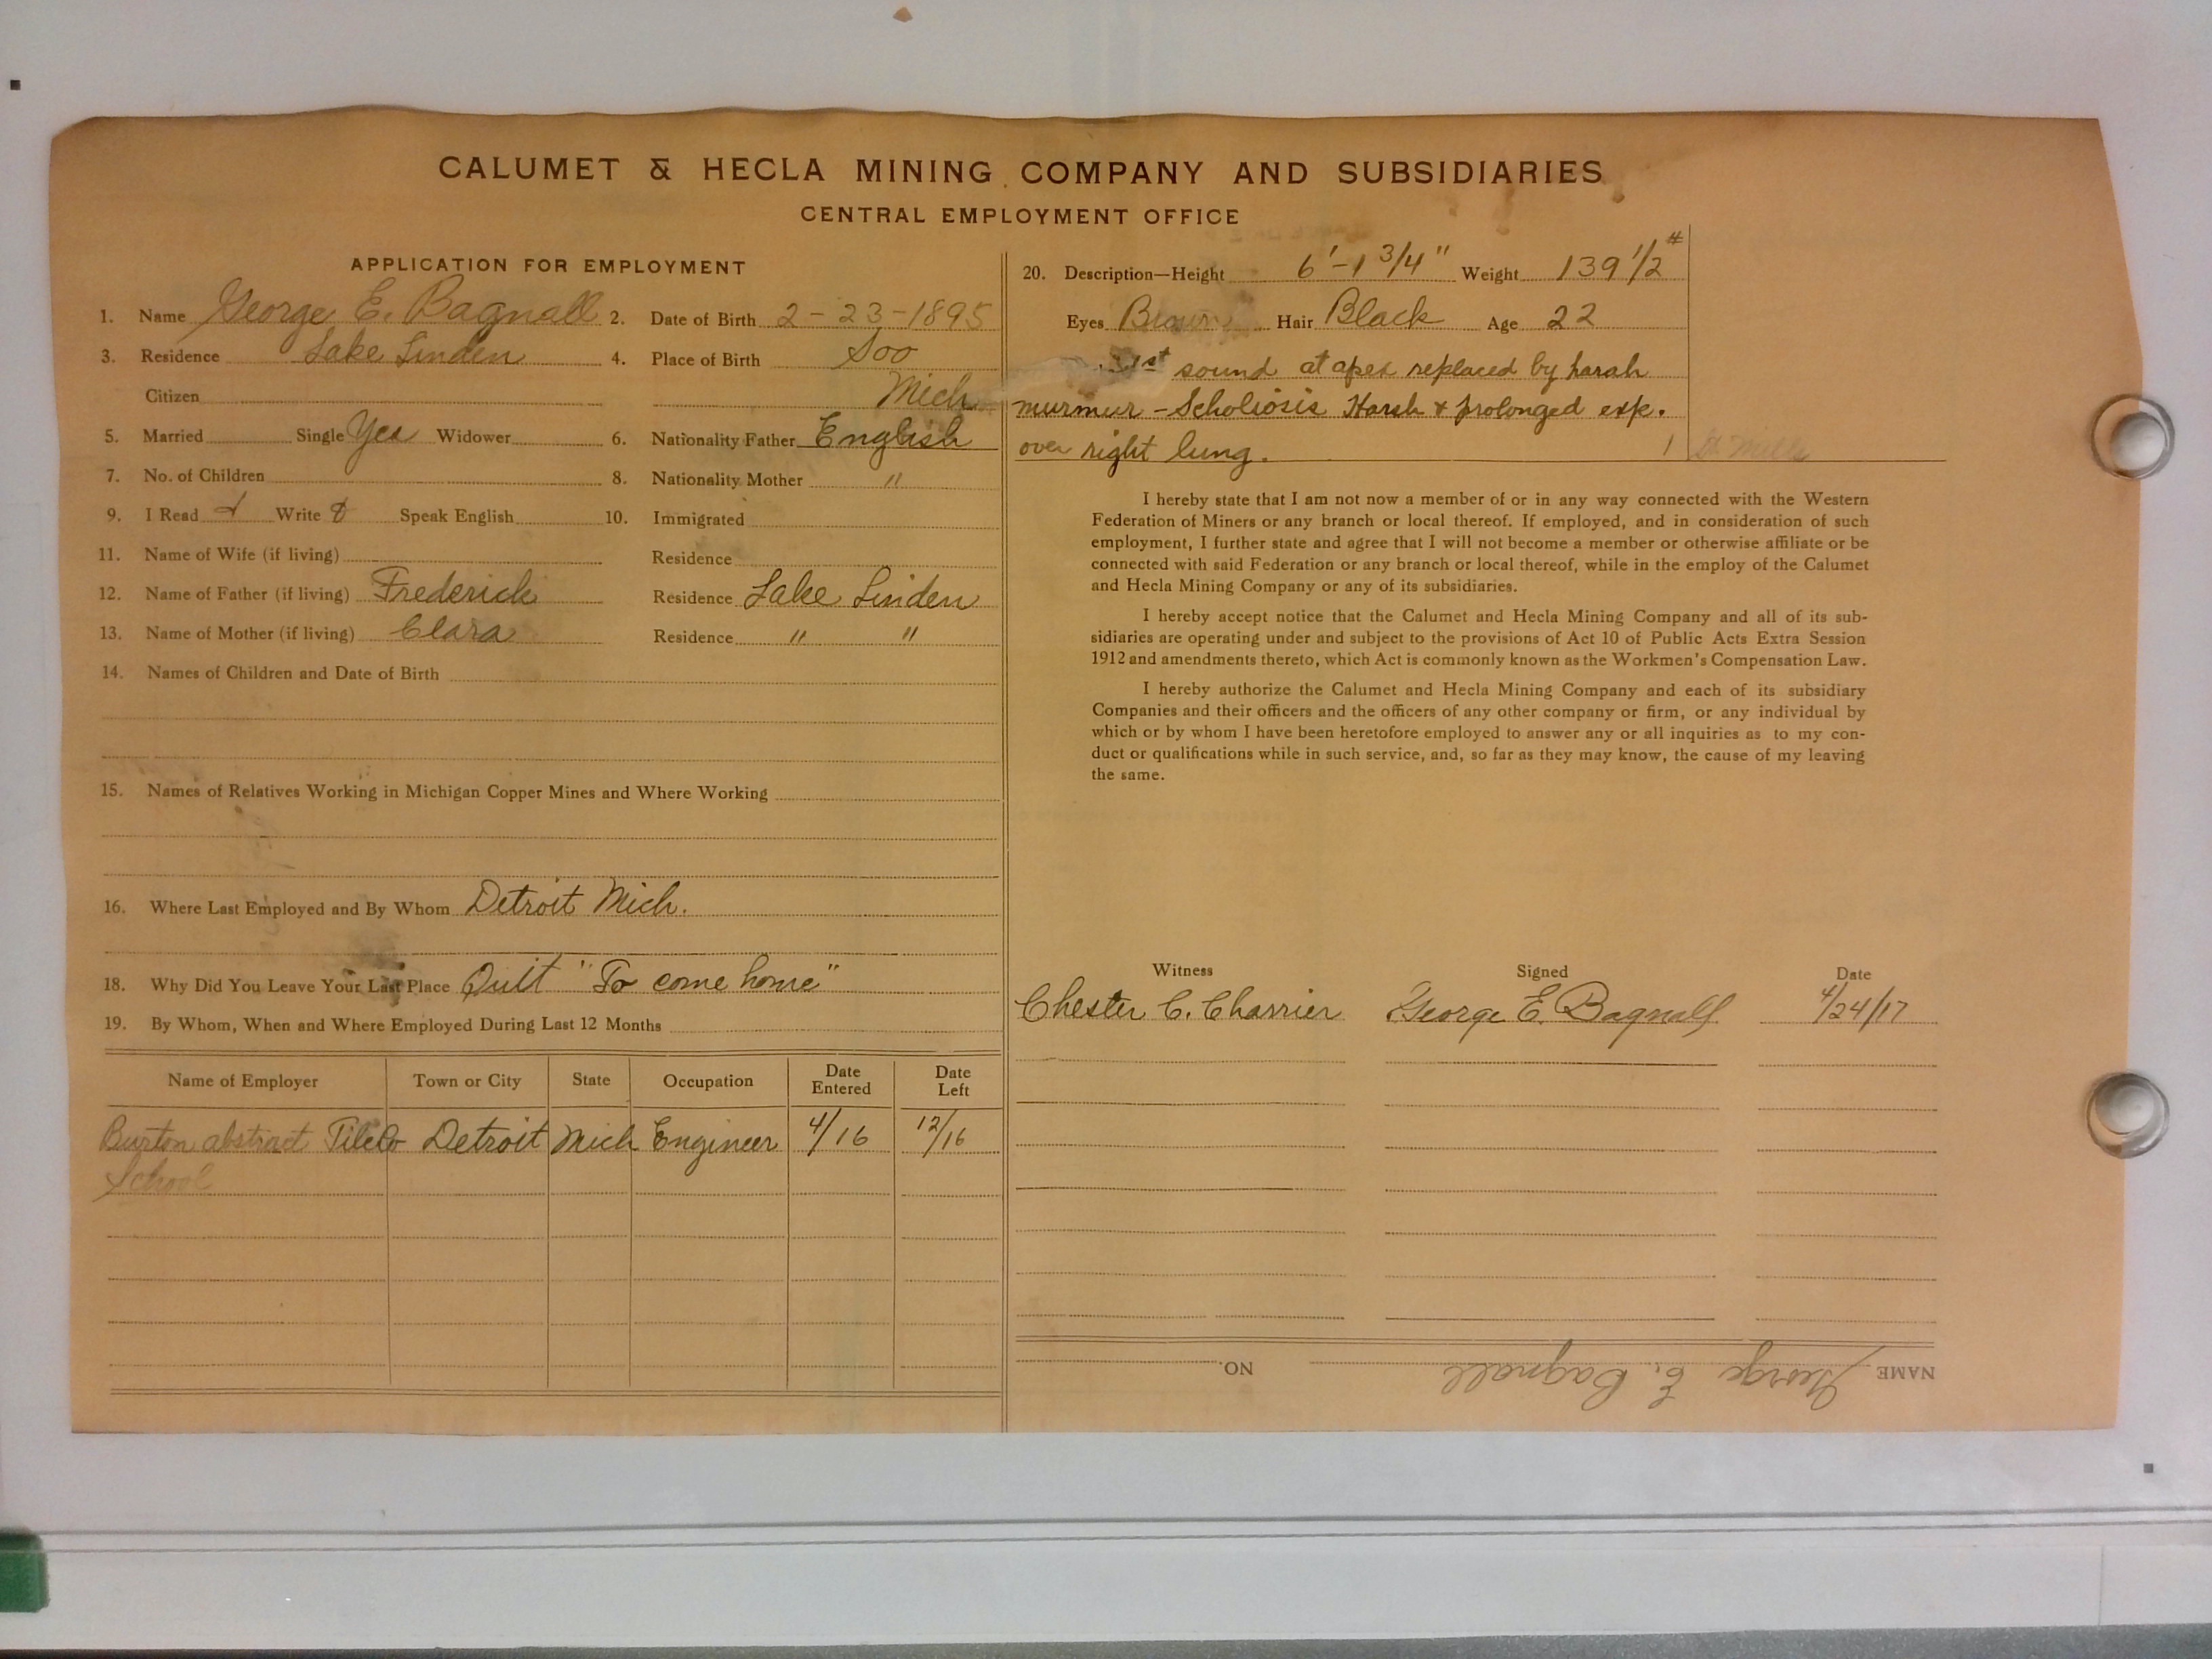 CALUMET & HECLA MINING COMPANY AND SUBSIDIARIES
CENTRAL EMPLOYMENT OFFICE
APPLICATION FOR EMPLOYMENT
1. Name George E. Bagnall 2. Date of Birth 2-23-1895
3. Residence Lake Linden 4. Place of Birth Soo
Citizen Mich
5. Married Single Yes Widower 6. Nationality Father English
7. No. of Children 8. Nationality Mother "
9. I Read Write Speak English 10. Immigrated
11. Name of Wife (if living) Residence
12. Name of Father (if living) Frederick Residence Lake Linden
13. Name of Mother (if living) Clara Residence " "
14. Names of Children and Date of Birth
15. Names of Relatives Working in Michigan Copper Mines and Where Working
16. Where Last Employed and By Whom Detroit Mich.
18. Why Did You Leave Your Last Place Quit "To come home"
19. By Whom, When and Where Employed During Last 12 Months
Name of Employer Town or City State Occupation Date Entered Date Left
Burton abstract Tile Co Detroit Mich Engineer 4/16 12/16
School
20. Description—Height 6'-1 3/4" Weight 139 1/2 #
Eyes Brown Hair Black Age 22
1st sound at apex replaced by harsh
murmur - Scholiosis Harsh & prolonged exp.
over right lung.
I hereby state that I am not now a member of or in any way connected with the Western
Federation of Miners or any branch or local thereof. If employed, and in consideration of such
employment, I further state and agree that I will not become a member or otherwise affiliate or be
connected with said Federation or any branch or local thereof, while in the employ of the Calumet
and Hecla Mining Company or any of its subsidiaries.
I hereby accept notice that the Calumet and Hecla Mining Company and all of its sub-
sidiaries are operating under and subject to the provisions of Act 10 of Public Acts Extra Session
1912 and amendments thereto, which Act is commonly known as the Workmen's Compensation Law.
I hereby authorize the Calumet and Hecla Mining Company and each of its subsidiary
Companies and their officers and the officers of any other company or firm, or any individual by
which or by whom I have been heretofore employed to answer any or all inquiries as to my con-
duct or qualifications while in such service, and, so far as they may know, the cause of my leaving
the same.
Witness Signed Date
Chester C. Charrier George E. Bagnall 4/24/17
NAME George E. Bagnall NO.